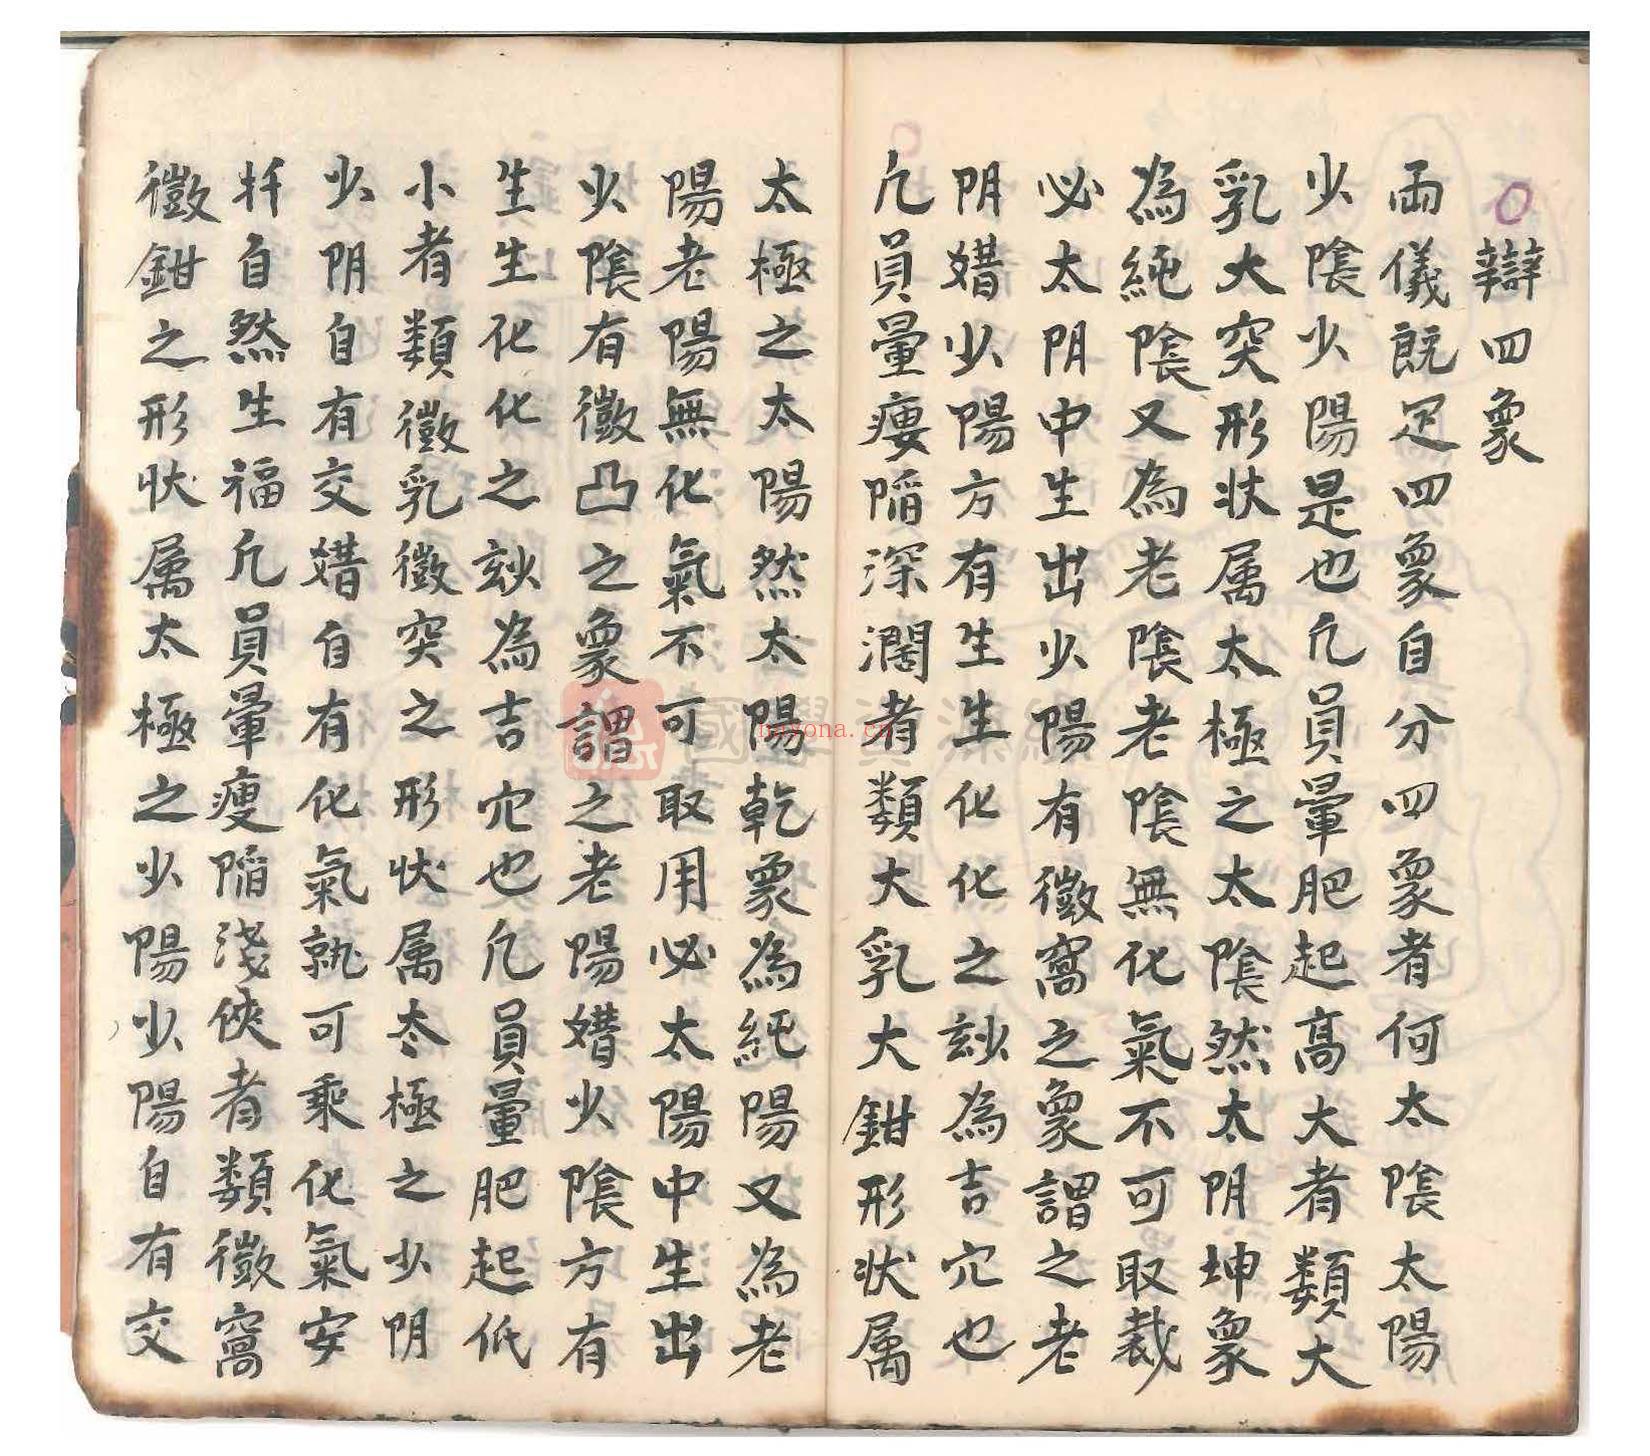 辯四象
兩儀既定四象自分四象者何太陰太陽
少陰少陽是也凢員暈肥起高大者類大
乳大突形状属太極之太陰然太阴坤象
為純陰又為老陰老陰無化氣不可取裁
必太阴中生出少陽有徵窩之象謂之老
阴媎少陽方有生生化化之玅為吉穴也
凢員暈瘻陷深濶者類大乳大鉗形状属
太極之太陽然太陽乾象為純陽又為老
陽老陽無化氣不可取用必太陽中生出
少陰有徵凸之象謂之老陽媎少陰方有
生生化化之玅為吉穴也凢員暈肥起低
小者類徵乳徵突之形状属太極之少阴
少阴自有交媎自有化氣孰可乘化氣安
扦自然生福凢員暈瘦陷浅俠者類徵窩
徵鉗之形状属太極之少陽少陽自有交
國學資源
nayona.cn